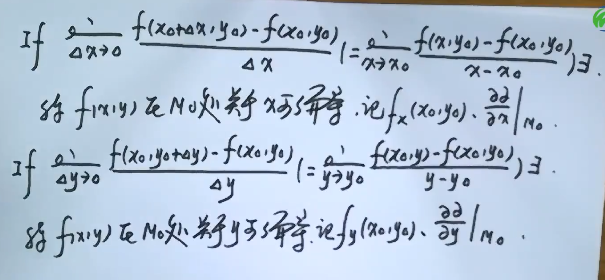 If lim Δx→0 f(x₀+Δx,y₀)-f(x₀,y₀)/Δx (= lim x→x₀ f(x,y₀)-f(x₀,y₀)/x-x₀)∃.
称f(x,y)在M₀处关于x可偏导.记f_x(x₀,y₀)、∂z/∂x|M₀.
If lim Δy→0 f(x₀,y₀+Δy)-f(x₀,y₀)/Δy (= lim y→y₀ f(x₀,y)-f(x₀,y₀)/y-y₀)∃.
称f(x,y)在M₀处关于y可偏导.记f_y(x₀,y₀)、∂z/∂y|M₀.